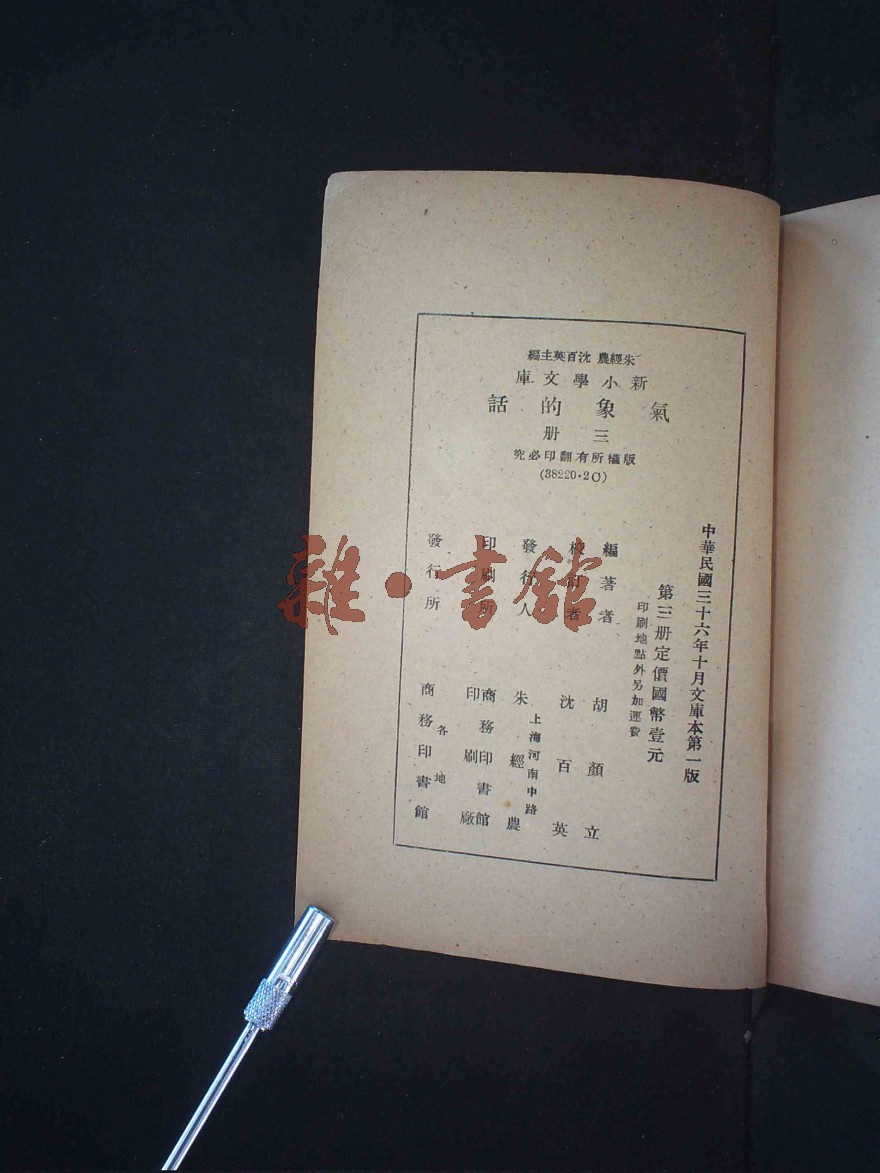 朱經農 沈百英主編
新小學文庫
氣象的話
三册
版權所有翻印必究
(38220·2C)
中華民國三十六年十月文庫本第一版
第三册定價國幣壹元
印刷地點外另加運費
編著者 胡顏立
校訂者 沈百英
發行人 朱經農
上海河南中路
印刷所 商務印書館
印刷廠
發行所 商務印書館
各地
雜·書館